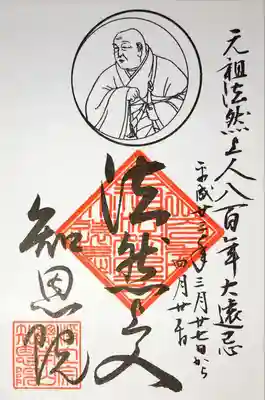 元祖法然上人八百年大遠忌
平成廿三年三月廿七日から
四月廿五日
法然上人
知恩院